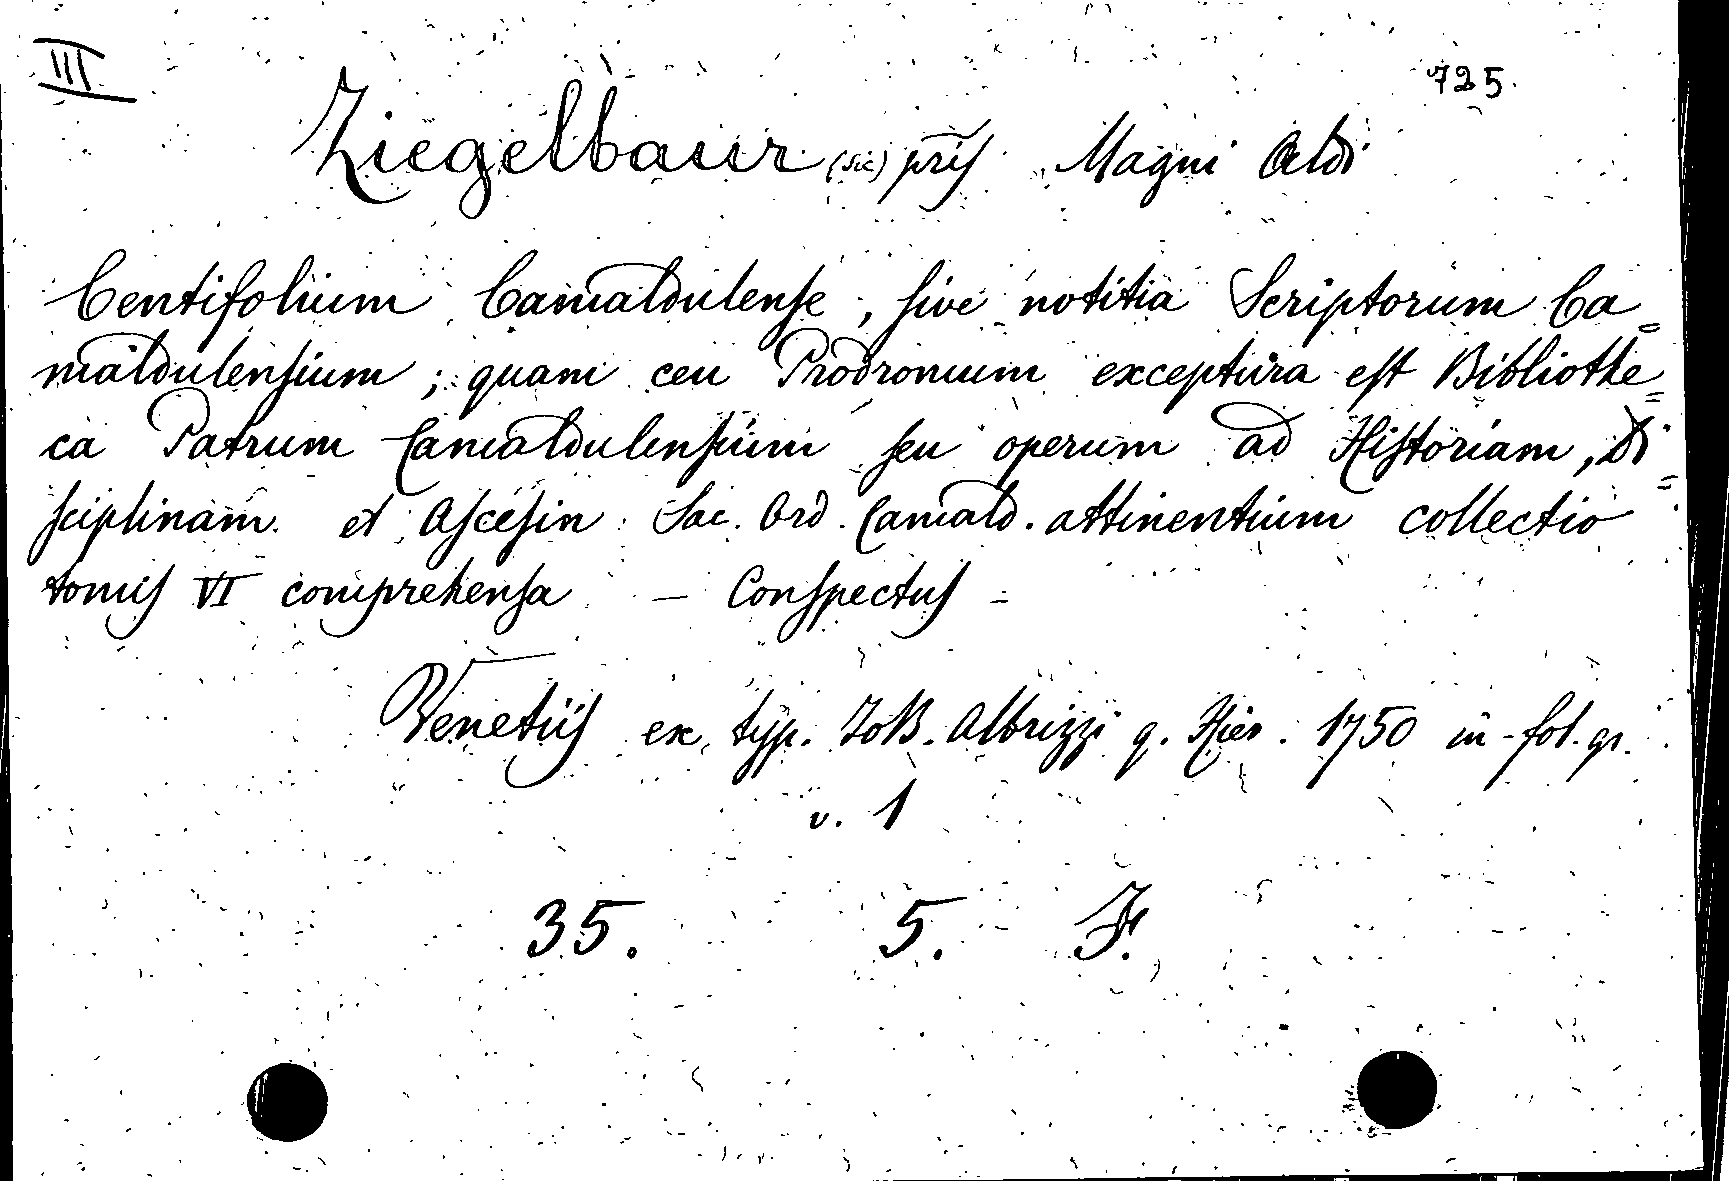 III 725.
Ziegelbaur (sic) pris Magni Aldi
Centifolium Camaldulense, sive notitia Scriptorum Ca=
maldulensium; quam ceu Prodromum exceptura est Bibliothe=
ca Patrum Camaldulensium seu operum ad Historiam, Di=
sciplinam et Ascesin Sac. Ord. Camald. attinentium collectio
tomis VI comprehensa - Conspectus -
Venetiis ex typ. JoB. Albrizzi q. Hier. 1750 in-fol. gr.
v. 1
35. 5. F.